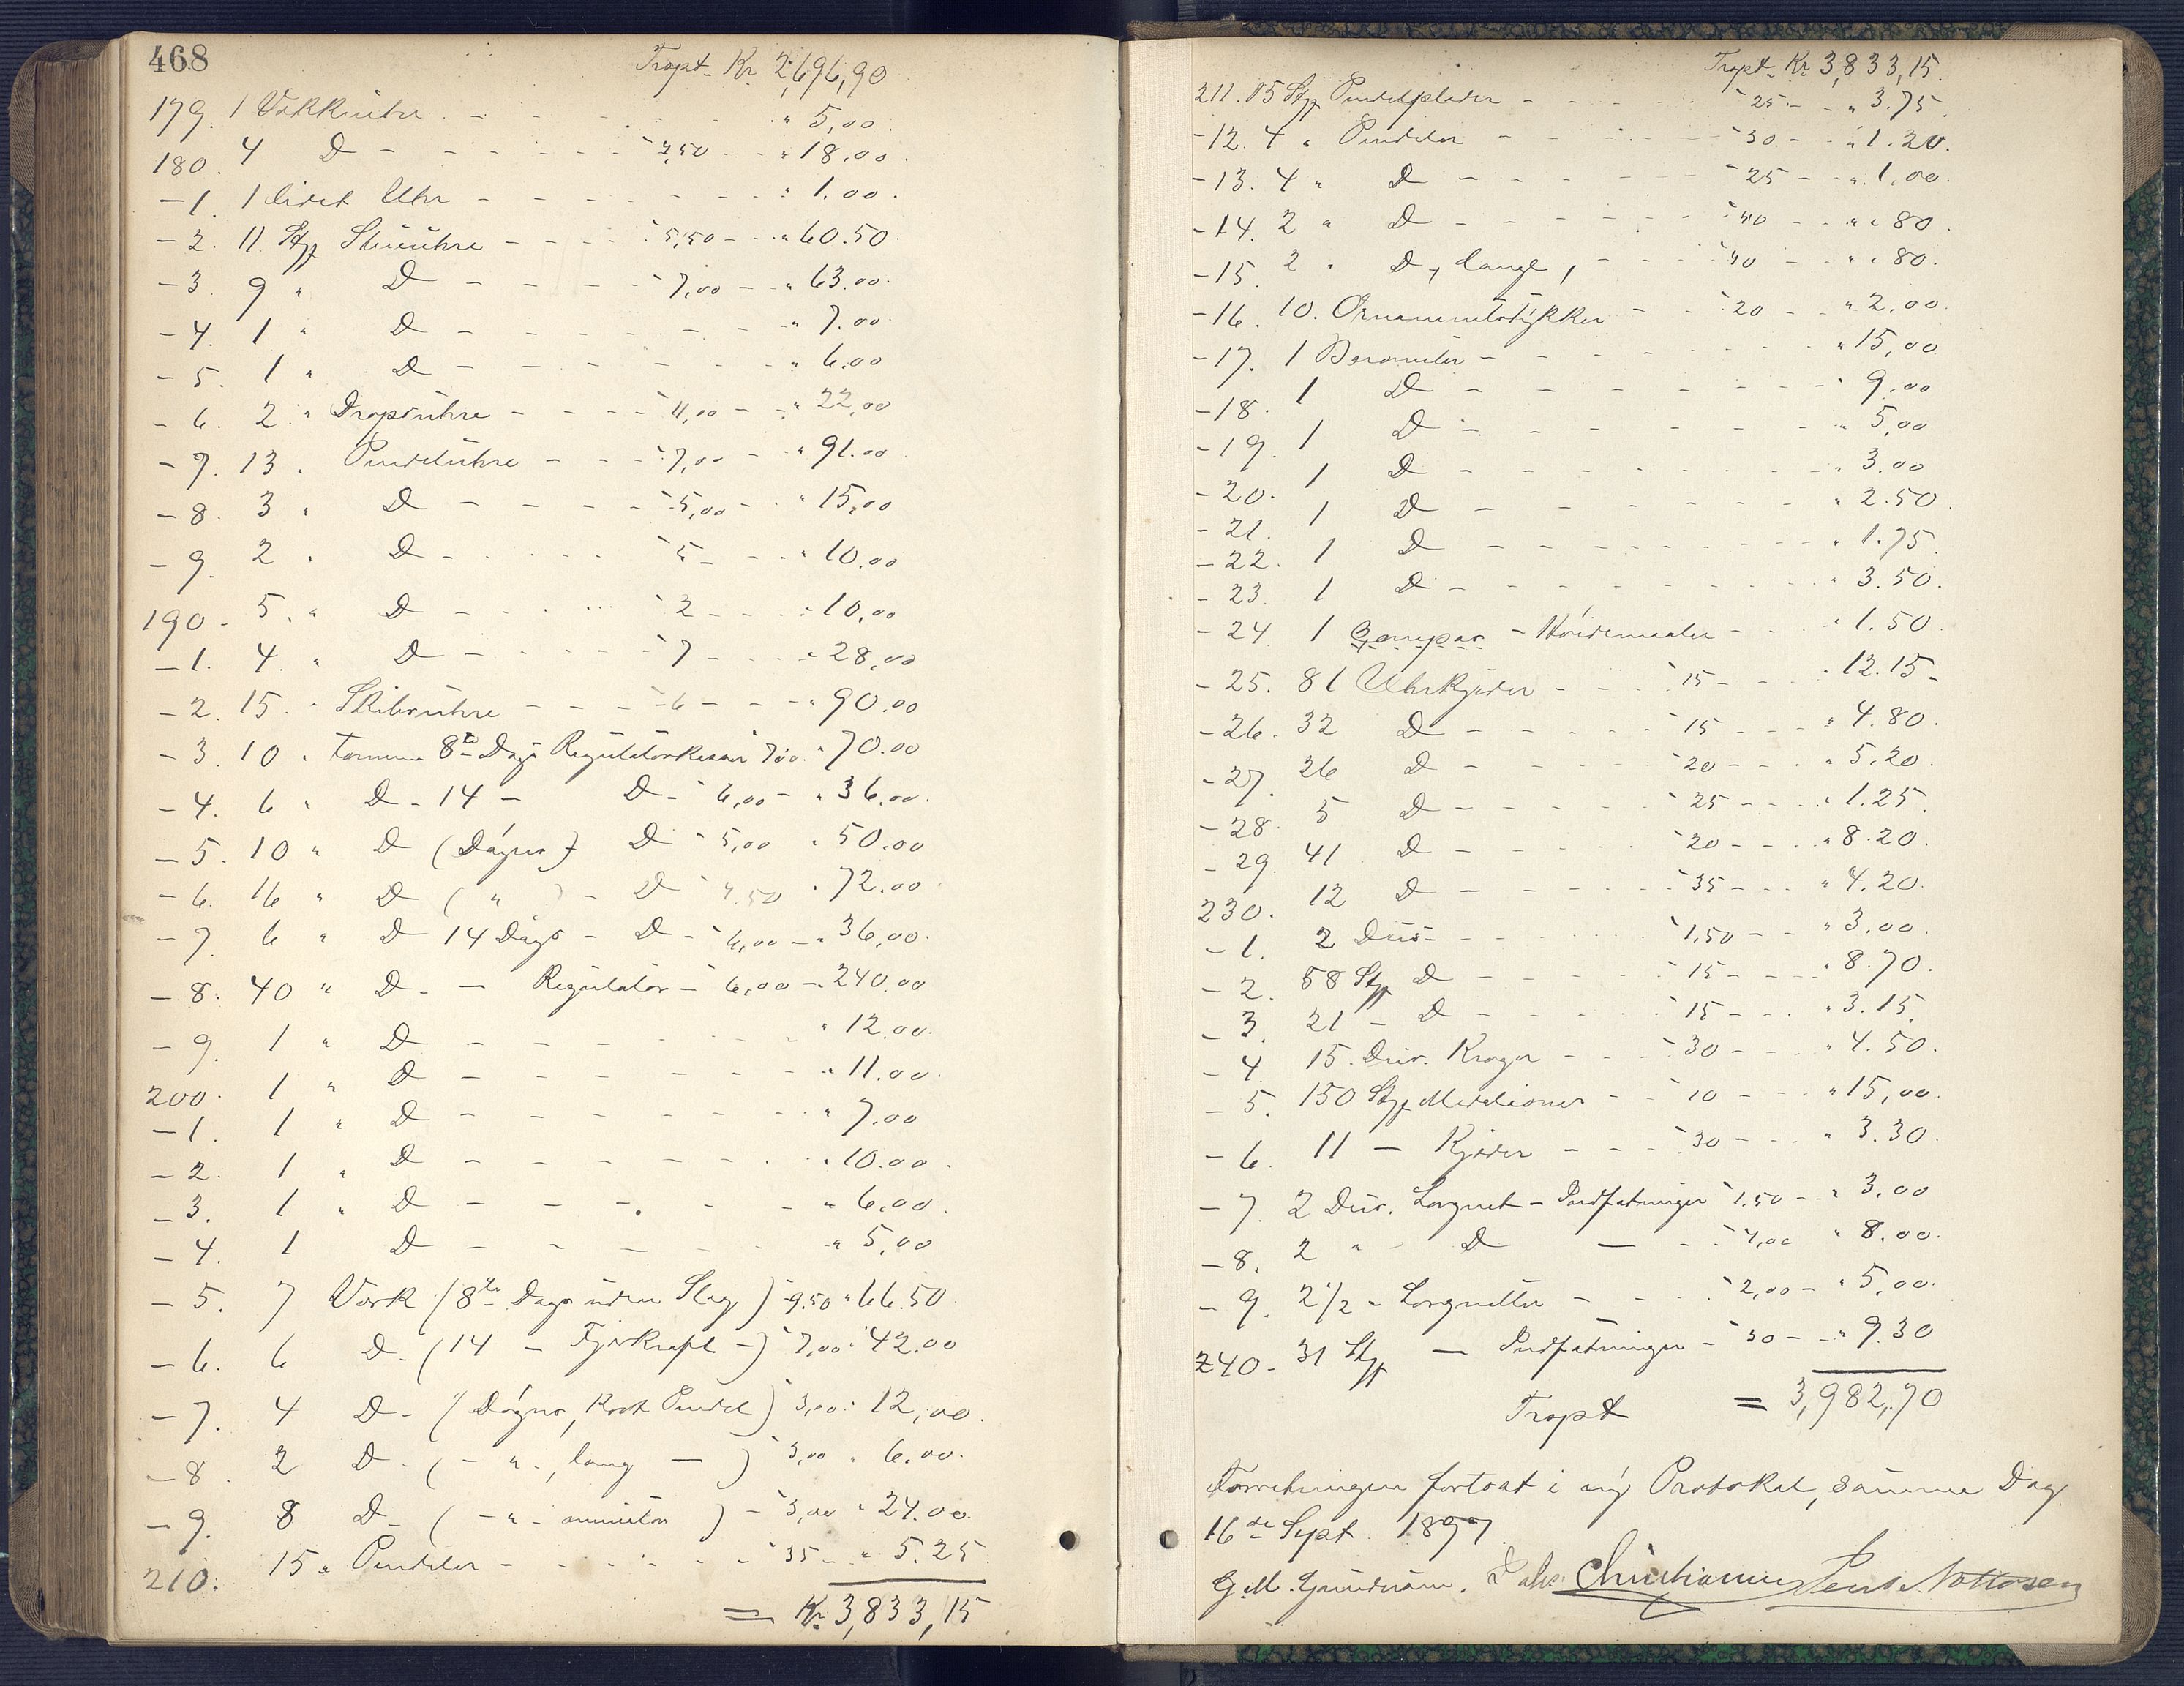 468
Trspt. Kr 2,696,90
179. 1 Vækkeuhr - - - " 5,00.
180. 4 D - - - " 4,50 - " 18.00.
- 1. 1 lidet Uhr - - - " 1.00.
- 2. 11 Stk Stueuhre - - - " 5,50 - " 60.50.
- 3. 9 " D - - - " 7,00 - " 63.00.
- 4. 1 " D - - - " 7.00.
- 5. 1 " D - - - " 6.00
- 6. 2 " uhre - - - " 11,00 - " 22,00
- 7. 13 " Pendeluhre - - - " 7,00 - " 91.00
- 8. 3 " D - - - " 5,00 - " 15,00
- 9. 2 " D - - - " 5 - " 10.00
190. 5. " D - - - " 2 - " 10,00
- 1. 4. " D - - - " 7 - " 28,00
- 2. 15. " Skibsuhre - - - " 6 - " 90.00
- 3. 10 " Tomme 8te Dags Regulatorkasser 7,00. " 70.00
- 4. 6 " D - 14 - D - " 6,00 - " 36.00.
- 5. 10 " D (Døgns) D " 5,00 " 50.00
- 6. 16 " D ( " ) - D " 4.50 " 72.00
- 7. 6 " D 14 Dags - D - " 6,00 - " 36,00.
- 8. 40 " D. - Regulator - " 6,00 - " 240.00
- 9. 1 " D - - - " 12.00.
200. 1 " D - - - " 11.00.
- 1. 1 " D - - - " 7.00
- 2. 1 " D - - - " 10.00.
- 3. 1 " D - - - " 6.00.
- 4. 1 D - - - " 5,00
- 5. 7 Værk (8te Dags uden Slag) " 9.50 " 66.50.
- 6. 6 D - (14 - Fjærkraft -) " 7,00 " 42.00
- 7. 4 D - (Døgns, kort Pendel) " 3,00 " 12,00.
- 8. 2 D - ( - " - , lang - ) " 3,00 " 6.00.
- 9. 8 D - ( - " - ) - " 3,00 " 24.00.
210. 15 " Pendeler - - - " 35 - " 5.25.
= Kr. 3,833,15
Trspt. Kr. 3,833,15.
211. 15 Stk Pendelplader - - - " 25 - " 3.75.
- 12. 4 " Pendeler - - - " 30 - " 1.20.
- 13. 4 " D - - - " 25 - " 1,00.
- 14. 2 " D - - - " 40 - " " 80.
- 15. 2 " D, lange, - - - " 40 - " " 80.
- 16. 10. Ornamentstykker - - " 20 - " 2,00.
- 17. 1 Barometer - - - " 15,00
- 18. 1 D - - - " 9.00
- 19. 1 D - - - " 5,00
- 20. 1 D - - - " 3.00
- 21. 1 D - - - " 2.50.
- 22. 1 D - - - " 1.75.
- 23. 1 D - - - " 3.50.
- 24. 1 - Høidemaaler - - " 1.50.
- 25. 81 Uhrkjeder - - - " 15 - " 12.15 -
- 26. 32 D - - - " 15 - " 4.80.
- 27. 26 D - - - " 20 - - " 5.20.
- 28. 5 D - - - " 25 - - " 1.25.
- 29. 41 D - - - " 20 - - " 8.20.
230. 12 D - - - " 35 - " 4.20.
- 1. 2 Dus - - - " 1,50 - - " 3.00.
- 2. 58 Stk D - - - " 15 - - " 8.70.
- 3. 21 - D - - - " 15 - - " 3.15.
- 4. 15. Dus. Kroger - - - " 30 - " 4.50.
- 5. 150 Stk Medalioner - - " 10 - " 15,00.
- 6. 11 - Kjæder - - - " 30 - " 3.30.
- 7. 2 Dus. Lorgnet - Indfatninger " 1.50 - " 3,00
- 8. 2 " D - - " 4,00 " 8.00.
- 9. 2 1/2 " Lorgnetter - - - " 2,00 - " 5,00.
240 - 31 Stk - Indfatninger - " 30 - " 9.30
Trspt = 3,982,70
Forretningen fortsat i ny Protokol, samme Dag
16de Sept. 1897.
G. M. Gundersen. Christiansen Nottosen